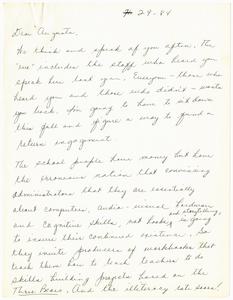 29-84
Dear Augusta,
We think and speak of you often. The
"we" includes the staff who heard you
speak here last year. Everyone - those who
heard you and those who didn't - wants
you back. I'm going to have to sit down
this fall and figure a way to fund a
return engagement.
The school people have money but have
the erroneous notion that convincing
administrators that they are essentially
about computers, audio-visual hardware
and cognitive skills, not books and storytelling, is going
to insure their continued existence. So
they invite producers of workbooks that
teach them how to teach teachers to do
skills building projects based on the
Three Bears. And the illiteracy rate soars!